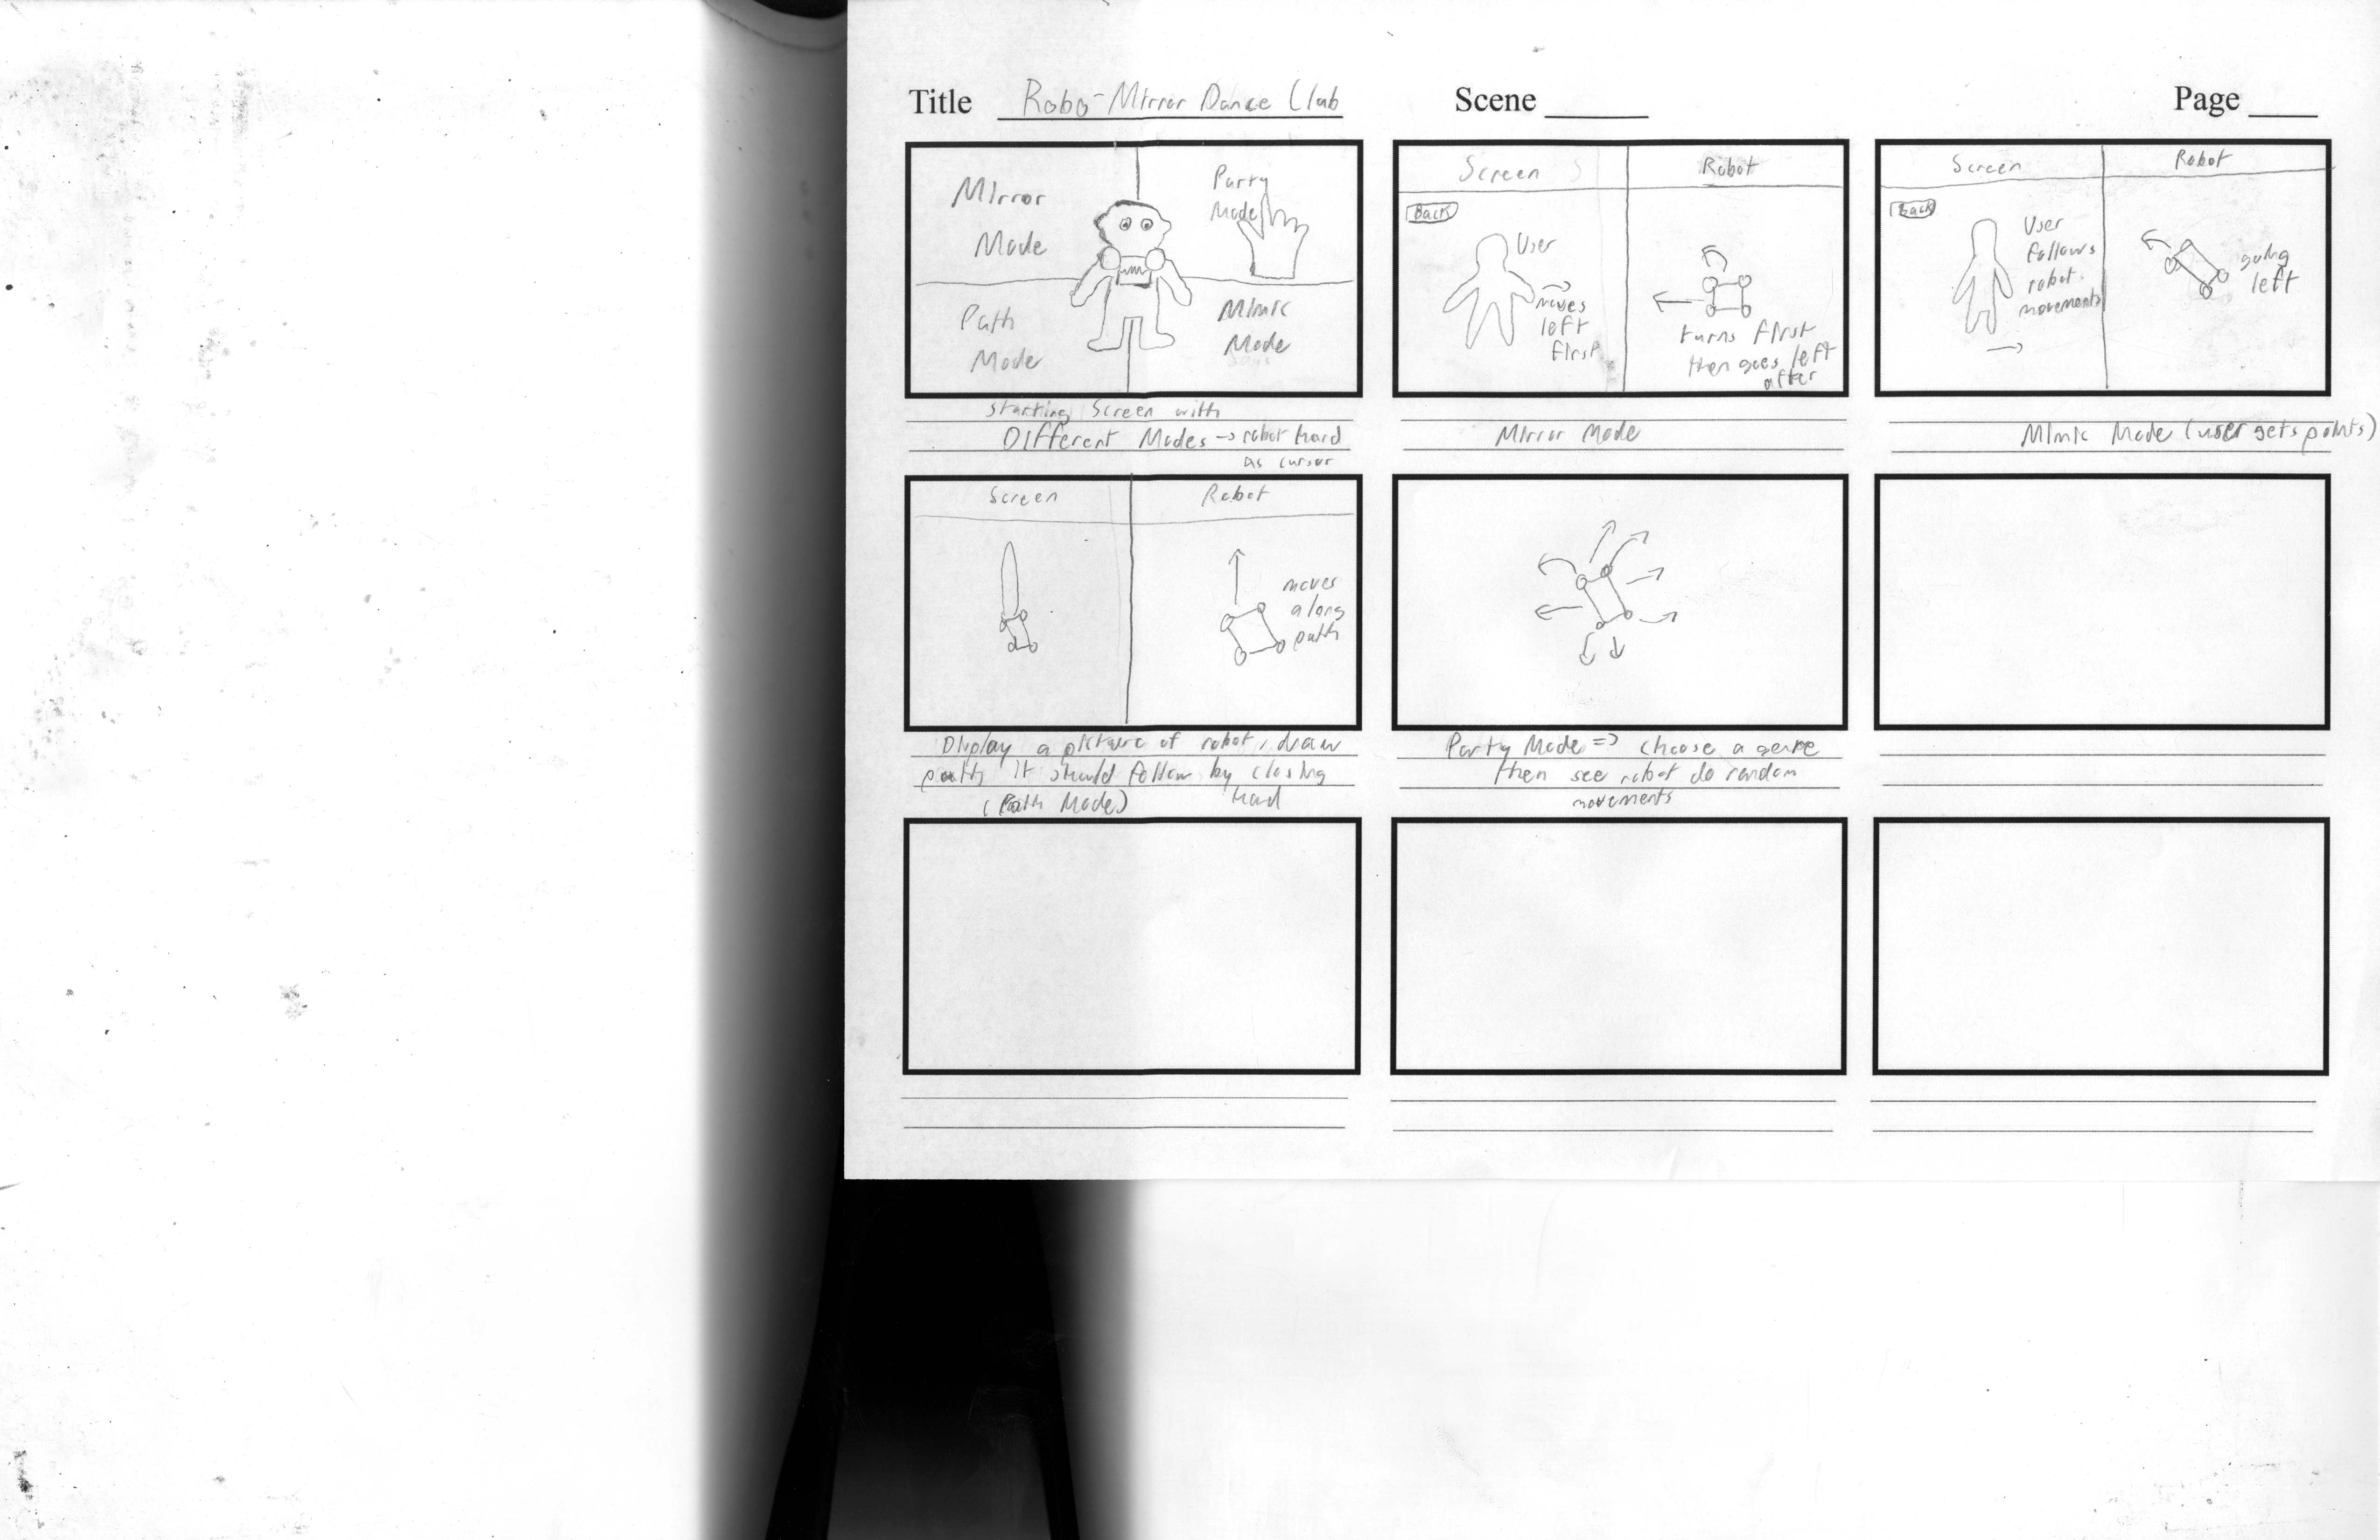 Title Robo-Mirror Dance Club
Scene
Page
Mirror
Mode
Party
Mode
Path
Mode
Mimic
Mode
starting Screen with
Different Modes → robot hand
as cursor
Screen
Robot
Back
User
moves
left
first
turns first
then goes left
after
Mirror Mode
Screen
Robot
Back
User
follows
robot
movements
going
left
Mimic Mode (user gets points)
Screen
Robot
moves
along
path
Display a picture of robot, draw
path it should follow by closing
(Path Mode) hand
Party Mode => choose a genre
then see robot do random
movements